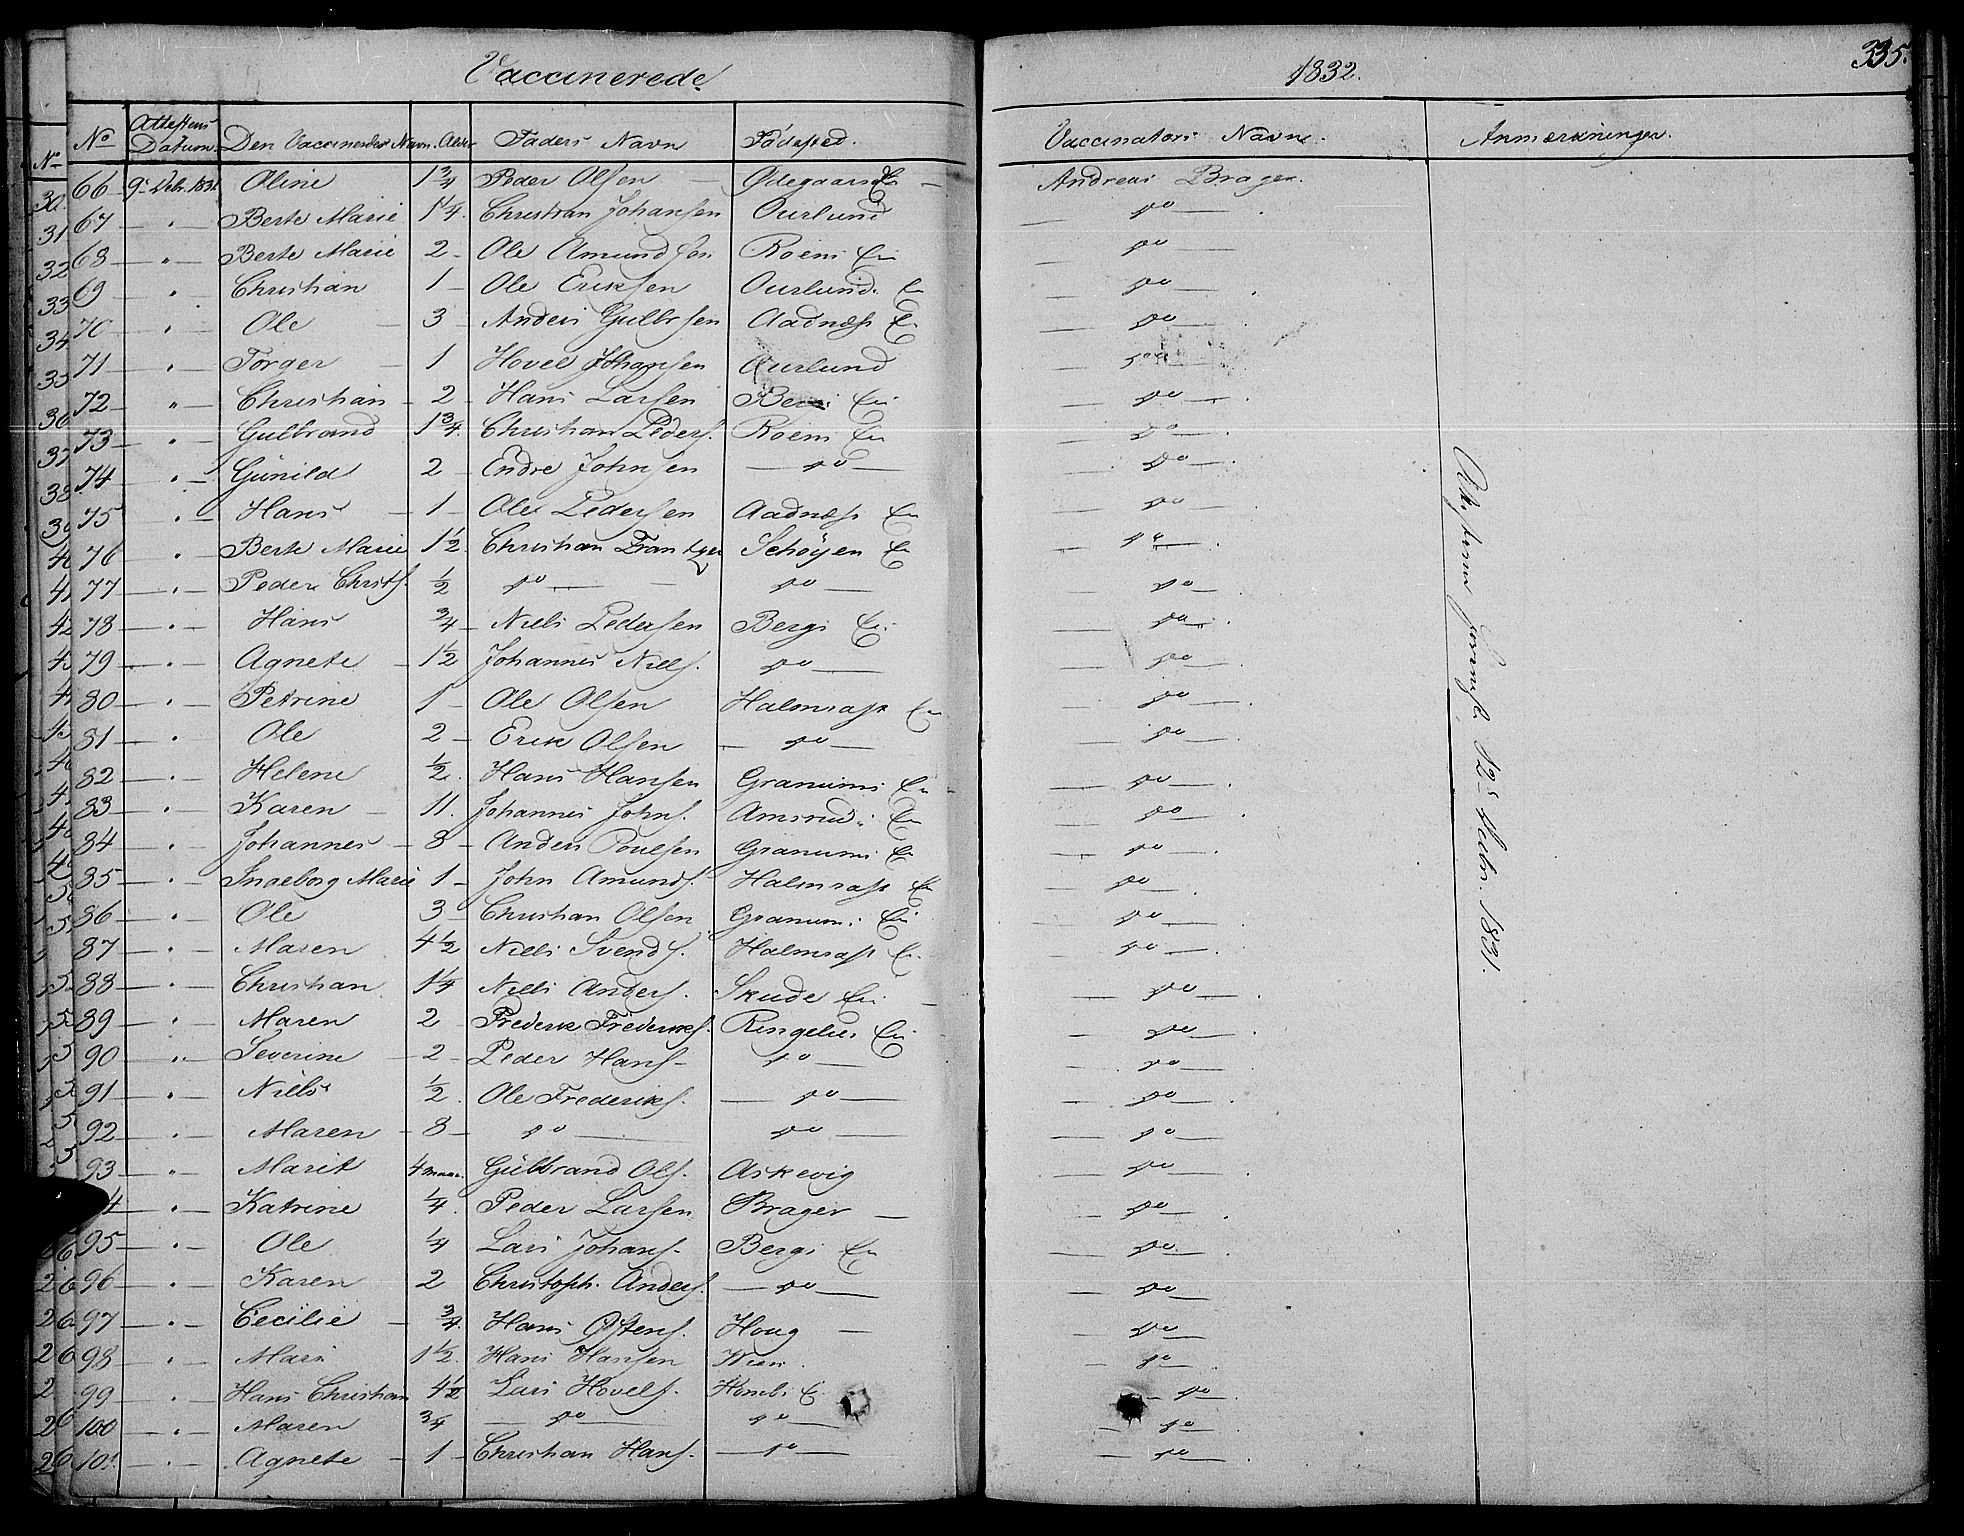 Vaccinerede
1832.
335.
No Attestens Datum. Den Vaccineredes Navn. Alder Faders Navn Fødested. Vaccinators Navn. Anmærkninger.
66 9 1831 Oline 1 3/4 Peder Olsen Ødegaards Andreas Brager.
67 " Berte Marie 1 1/4. Christian Johansen Ourlund do
68 " Berte Marie 2 Ole Amundsen Roens Ei do
69 " Christian 1 Ole Eriksen Ourlund. Ei do
70 " Ole 3 Anders Gulbrsen Aadness Ei do
71 " Torger 1 Hovel Johansen Ourlund do
72 " Christian 2 Hans Larsen Bergs Ei do
73 " Gulbrand 1 3/4. Christian Peders. Roens Ei do
74 " Gunild 2 Endre Johnsen do do
75 " Hans 1 Ole Pedersen Aadness Ei do
76 " Berte Marie 1 1/2. Christian Schøyen Ei do
77 " Peder Christs. 1/2 do do do
78 " Hans 3/4 Niels Pedersen Bergs Ei do
79 " Agnete 1 1/2 Johannes Niels. do do
80 " Petrine 1 Ole Olsen Halmrast Ei do
81 " Ole 2 Erik Olsen do do
82 " Helene 1/2. Hans Hansen Granums Ei do
83 " Karen 11. Johannes Johns. Amsruds Ei do
84 " Johannes 8 Anders Poulsen Granums Ei do
85 " Ingeborg Marie 1 John Amunds. Halmrast Ei do
86 " Ole 3 Christian Olsen Granums Ei do
87 " Maren 4 1/2 Niels Svends. Halmrast Ei do
88 " Christian 1 1/4 Niels Anders. Skude Ei do
89 " Maren 2 Frederik Frederiks. Ringelies Ei do
90 " Severine 2 Peder Hans. do do
91 " Niels 1/2. Ole Frederiks. do do
92 " Maren 8 do do do
93 " Marit 4 Gulbrand Ols. Askevig do
94 " Katrine 1/4. Peder Larsen Brager do
95 " Ole 1/4 Lars Johans. Bergs Ei do
96 " Karen 2 Christoph. Anders. do do
97 " Cecilie 3/4. Hans Østens. Houg do
98 " Mari 1 1/2. Hans Hansen Wien. do
99 " Hans Christian 4 1/2 Lars Hovels. Ei do
100 " Maren 3/4 do do do
101 " Agnete 1 Christian Hans. do do
1831.